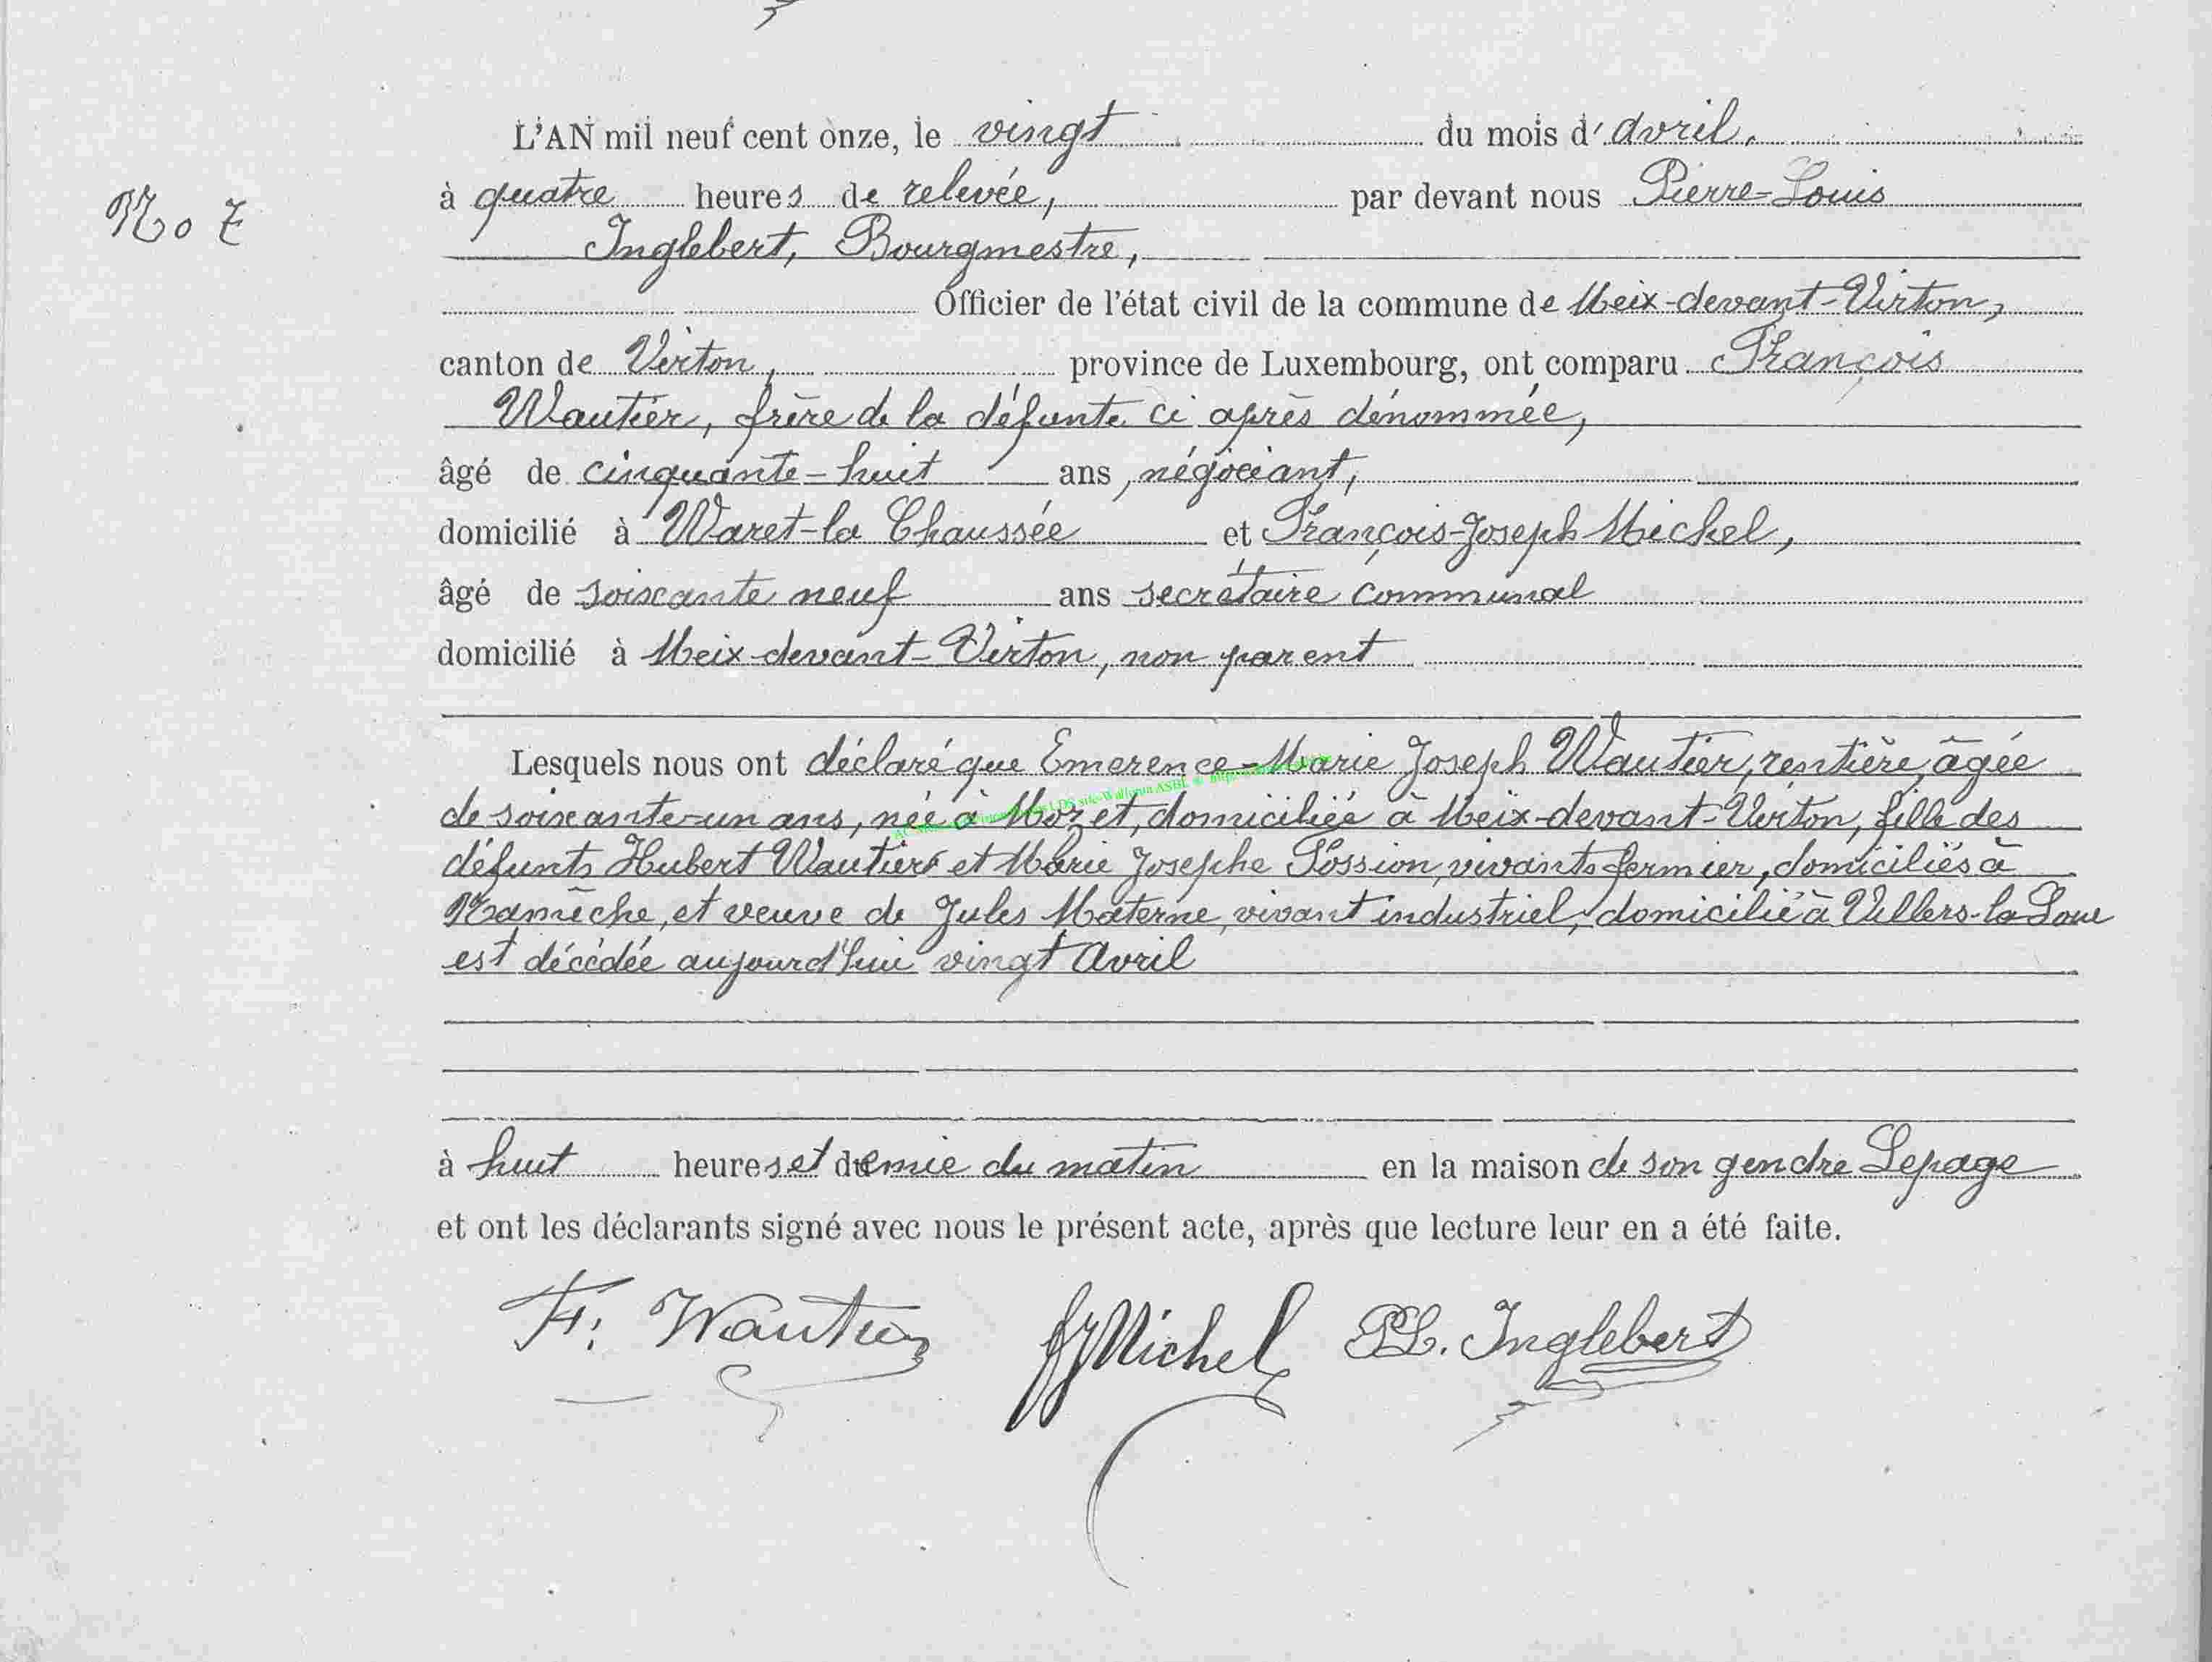 L'AN mil neuf cent onze, le vingt du mois d'avril,
No 7
à quatre heures de relevée, par devant nous Pierre-Louis
Inglebert, Bourgmestre,
Officier de l'état civil de la commune de Meix-devant-Virton,
canton de Virton, province de Luxembourg, ont comparu François
Wautier, frère de la défunte ci après dénommée,
âgé de cinquante-huit ans, négociant,
domicilié à Waret-la Chaussée et François-Joseph Michel,
âgé de soixante neuf ans secrétaire communal
domicilié à Meix-devant-Virton, non parent
Lesquels nous ont déclaré que Emerence-Marie Joseph Wautier, rentière, âgée
de soixante-un ans, née à Mozet, domiciliée à Meix-devant-Virton, fille des
défunts Hubert Wautier et Marie Josephe Possion, vivants fermier, domiciliés à
Namêche, et veuve de Jules Materne, vivant industriel, domicilié à Villers-la-Loue
est décédée aujourd'hui vingt Avril
à huit heures et demie du matin en la maison de son gendre Lepage
et ont les déclarants signé avec nous le présent acte, après que lecture leur en a été faite.
Fr: Wautier fjMichel PL. Inglebert